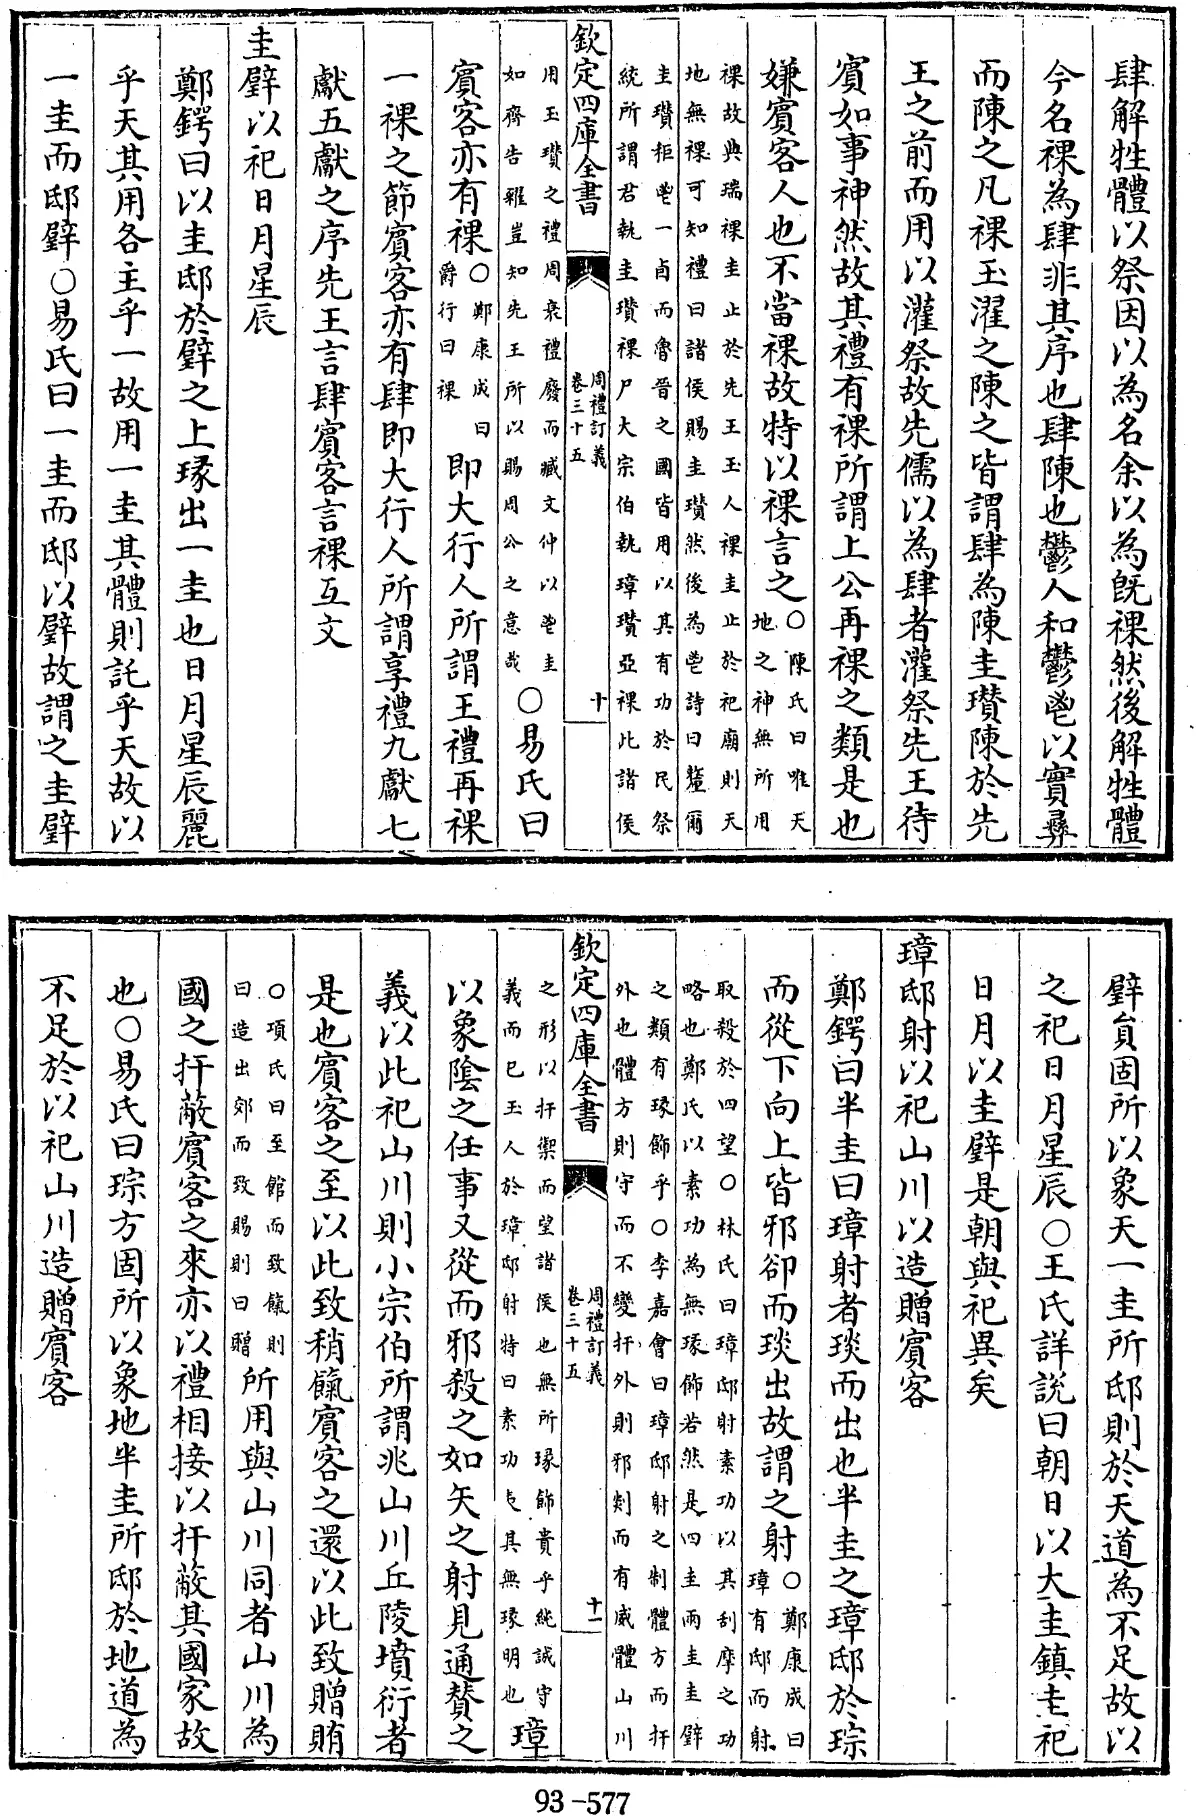 肆解牲體以祭因以為名余以為既祼然後解牲體
今名祼為肆非其序也肆陳也鬱人和鬱鬯以實彞
而陳之凡祼玉濯之陳之皆謂肆為陳圭瓚陳於先
王之前而用以灌祭故先儒以為肆者灌祭先王待
賓如事神然故其禮有祼所謂上公再祼之類是也
嫌賓客人也不當祼故特以祼言之○陳氏曰唯天
地之神無所用
祼故典瑞祼圭止於先王玉人祼圭止於祀廟則天
地無祼可知禮曰諸侯賜圭瓚然後為鬯詩曰釐爾
圭瓚秬鬯一卣而魯晉之國皆用以其有功於民祭
統所謂君執圭瓚祼尸大宗伯執璋瓚亞祼此諸侯
欽定四庫全書 周禮訂義
卷三十五 十
用玉瓚之禮周衰禮廢而臧文仲以鬯圭
如齊告糴豈知先王所以賜周公之意哉
○易氏曰
賓客亦有祼○鄭康成曰
爵行曰祼
即大行人所謂王禮再祼
一祼之節賓客亦有肆即大行人所謂享禮九獻七
獻五獻之序先王言肆賓客言祼互文
圭璧以祀日月星辰
鄭鍔曰以圭邸於璧之上琢出一圭也日月星辰麗
乎天其用各主乎一故用一圭其體則託乎天故以
一圭而邸璧○易氏曰一圭而邸以璧故謂之圭璧
璧員固所以象天一圭所邸則於天道為不足故以
之祀日月星辰○王氏詳說曰朝日以大圭鎮圭祀
日月以圭璧是朝與祀異矣
璋邸射以祀山川以造贈賓客
鄭鍔曰半圭曰璋射者琰而出也半圭之璋邸於琮
而從下向上皆邪卻而琰出故謂之射○鄭康成曰
璋有邸而射
取殺於四望○林氏曰璋邸射素功以其刮摩之功
略也鄭氏以素功為無瑑飾若然是四圭兩圭圭璧
之類有瑑飾乎○李嘉會曰璋邸射之制體方而扞
外也體方則守而不變扞外則邪剡而有威體山川
欽定四庫全書 周禮訂義
卷三十五 十一
之形以扞禦而望諸侯也無所瑑飾貴乎純誠守
義而已玉人於璋邸射特曰素功㠯其無瑑明也
璋
以象陰之任事又從而邪殺之如矢之射見通贊之
義以此祀山川則小宗伯所謂兆山川丘陵墳衍者
是也賓客之至以此致稍餼賓客之還以此致贈賄
○項氏曰至館而致餼則
曰造出郊而致賜則曰贈
所用與山川同者山川為
國之扞蔽賓客之來亦以禮相接以扞蔽其國家故
也○易氏曰琮方固所以象地半圭所邸於地道為
不足於以祀山川造贈賓客
93-577